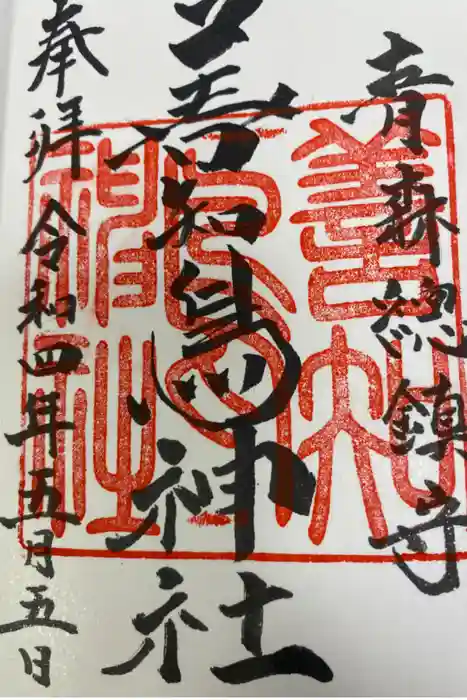 青森總鎮守
善知鳥神社
奉拝 令和四年五月五日
善知
鳥
神社